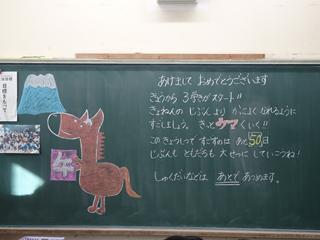 目標をもって
あけまして おめでとうございます
きょうから 3学きがスタート!!
きょねんの じぶんより かっこよくなれるように
すごしましょう。 きっと ウマくいく!!
この きょうしつで すごすのは あと 50日
じぶんも ともだちも 大せつに していこうね!
しゅくだいなどは あとで あつめます。
年